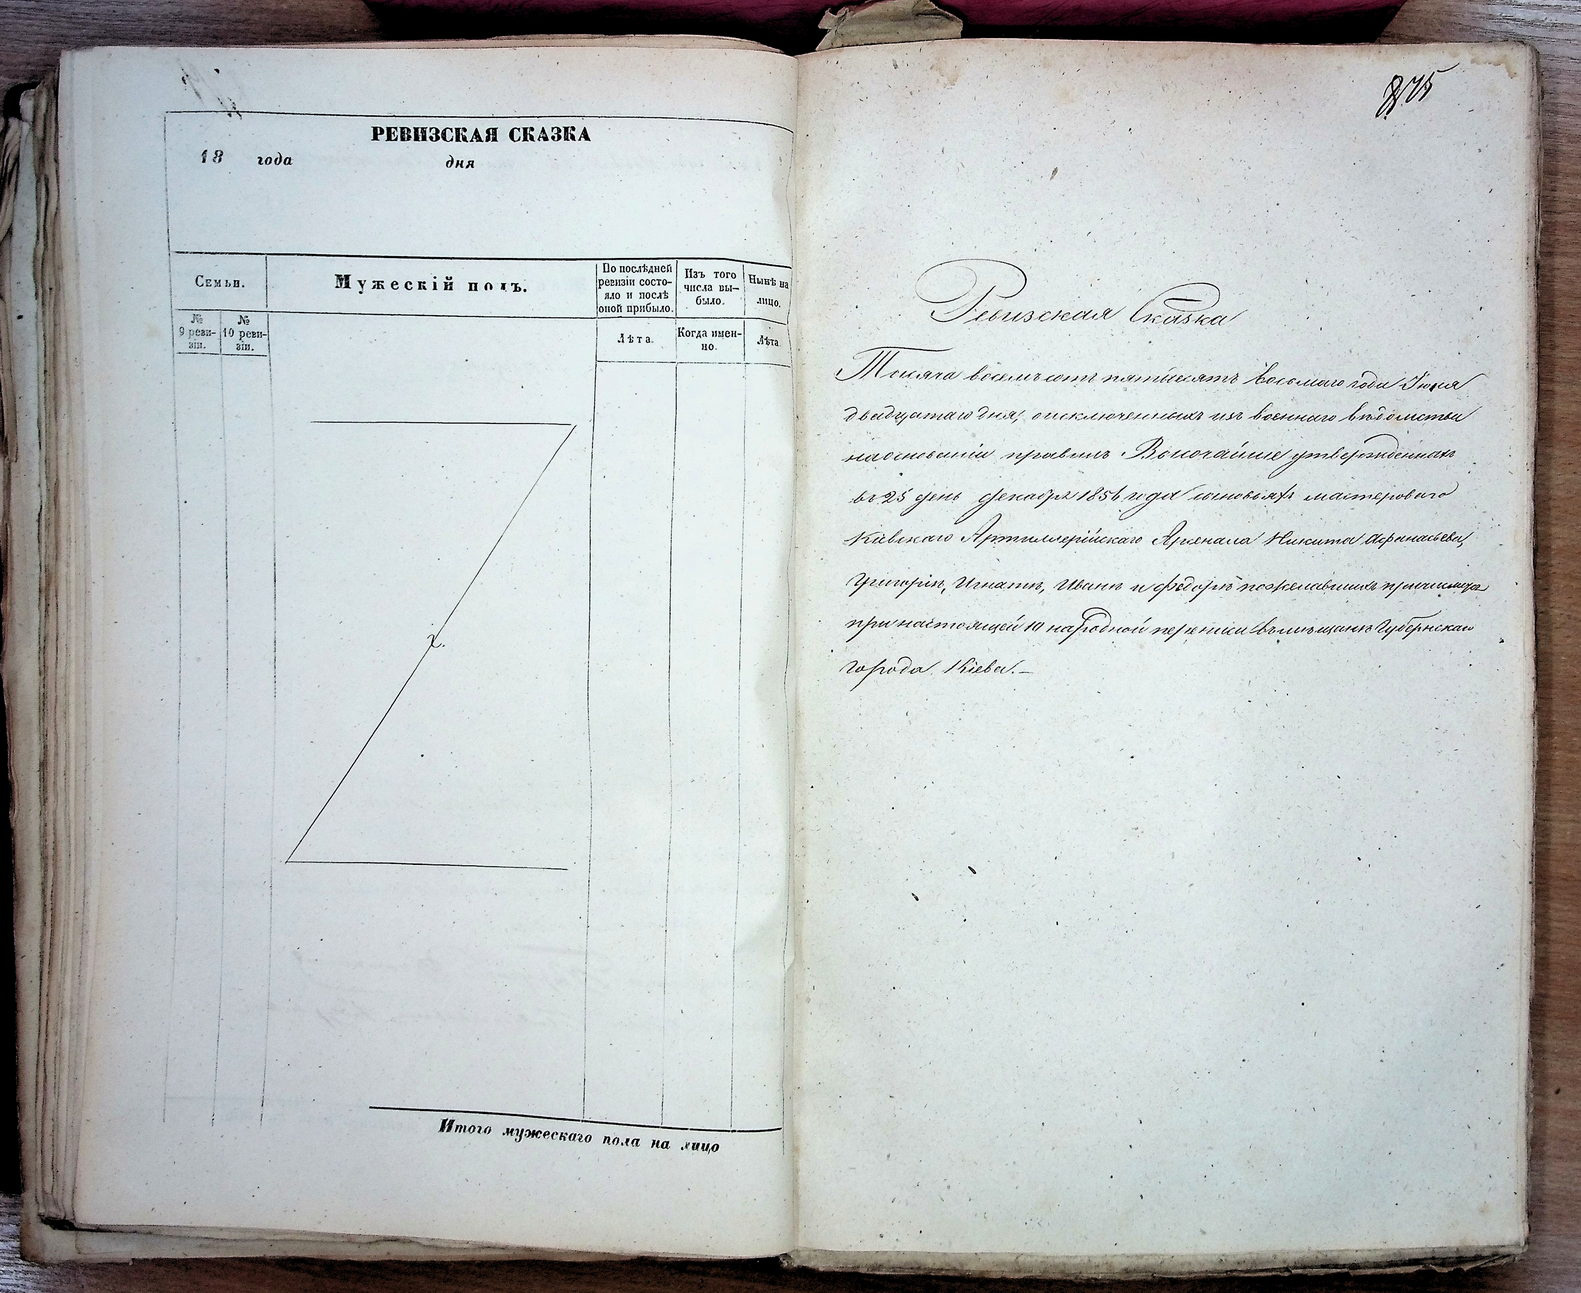 РЕВИЗСКАЯ СКАЗКА
18 года дня
Семьи.
№ 9 реви-зіи.
№ 10 реви-зіи.
Мужескій полъ.
По послѣдней
ревизіи состо-
яло и послѣ
оной прибыло.
Лѣта.
Изъ того
числа вы-
было.
Когда имен-
но.
Нынѣ на
лицо.
Лѣта
Итого мужескаго пола на лицо
875
Ревизская Сказка
Тысяча восемьсотъ пятьдесятъ восьмаго года Іюня
двадцатаго дня, о исключенныхъ изъ военнаго вѣдомства
на основаніи правилъ Высочайше утвержденныхъ
въ 25 день декабря 1856 года сыновьяхъ мастероваго
Кіевскаго Артиллерійскаго Арсенала Никита Афанасьева,
Григоріѣ, Игнатіѣ, Иванѣ и Федорѣ пожелавшихъ
при настоящей 10 народной переписи въ мѣщане Губернскаго
города Кіева. —